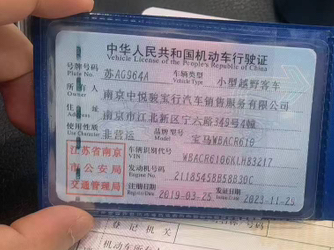 中华人民共和国机动车行驶证
Vehicle License of the People's Republic of China
号牌号码 苏AG964A 车辆类型 小型越野客车
Plate No. Vehicle Type
所有人 南京中悦骏宝行汽车销售服务有限公司
Owner
住址 南京市江北新区宁六路349号4幢
Address
使用性质 非营运 品牌型号 宝马WBACR610
Use Character Model
江苏省南京市公安局交通管理局
车辆识别代号
VIN
发动机号码
Engine No.
注册日期 2019-03-25 发证日期 2023-11-25
Register Date Issue Date